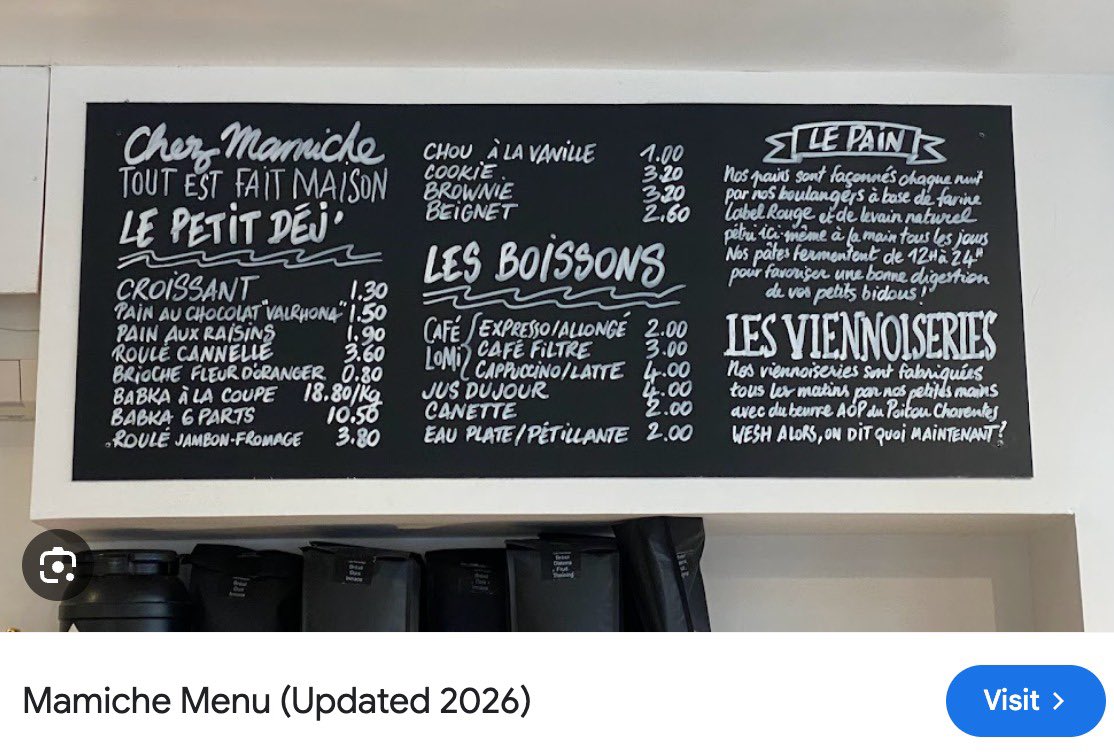 Chez Mamiche
TOUT EST FAIT MAISON
LE PETIT DÉJ'
CROISSANT 1.30
PAIN AU CHOCOLAT "VALRHONA" 1.50
PAIN AUX RAISINS 1.90
ROULÉ CANNELLE 3.60
BRIOCHE FLEUR D'ORANGER 0.80
BABKA À LA COUPE 18.80/kg
BABKA 6 PARTS 10.50
ROULÉ JAMBON-FROMAGE 3.80
CHOU À LA VANILLE 1.00
COOKIE 3.20
BROWNIE 3.20
BEIGNET 2.60
LES BOISSONS
CAFÉ LOMI
EXPRESSO/ALLONGÉ 2.00
CAFÉ FILTRE 3.00
CAPPUCCINO/LATTE 4.00
JUS DU JOUR 4.00
CANETTE 2.00
EAU PLATE/PÉTILLANTE 2.00
LE PAIN
Nos pains sont façonnés chaque nuit
par nos boulangers à base de farine
Label Rouge et de levain naturel
pétri ici-même à la main tous les jours
Nos pâtes fermentent de 12H à 24H
pour favoriser une bonne digestion
de vos petits bidous !
LES VIENNOISERIES
Nos viennoiseries sont fabriquées
tous les matins par nos petites mains
avec du beurre AOP du Poitou Charentes
WESH ALORS, ON DIT QUOI MAINTENANT ?
Mamiche Menu (Updated 2026)
Visit